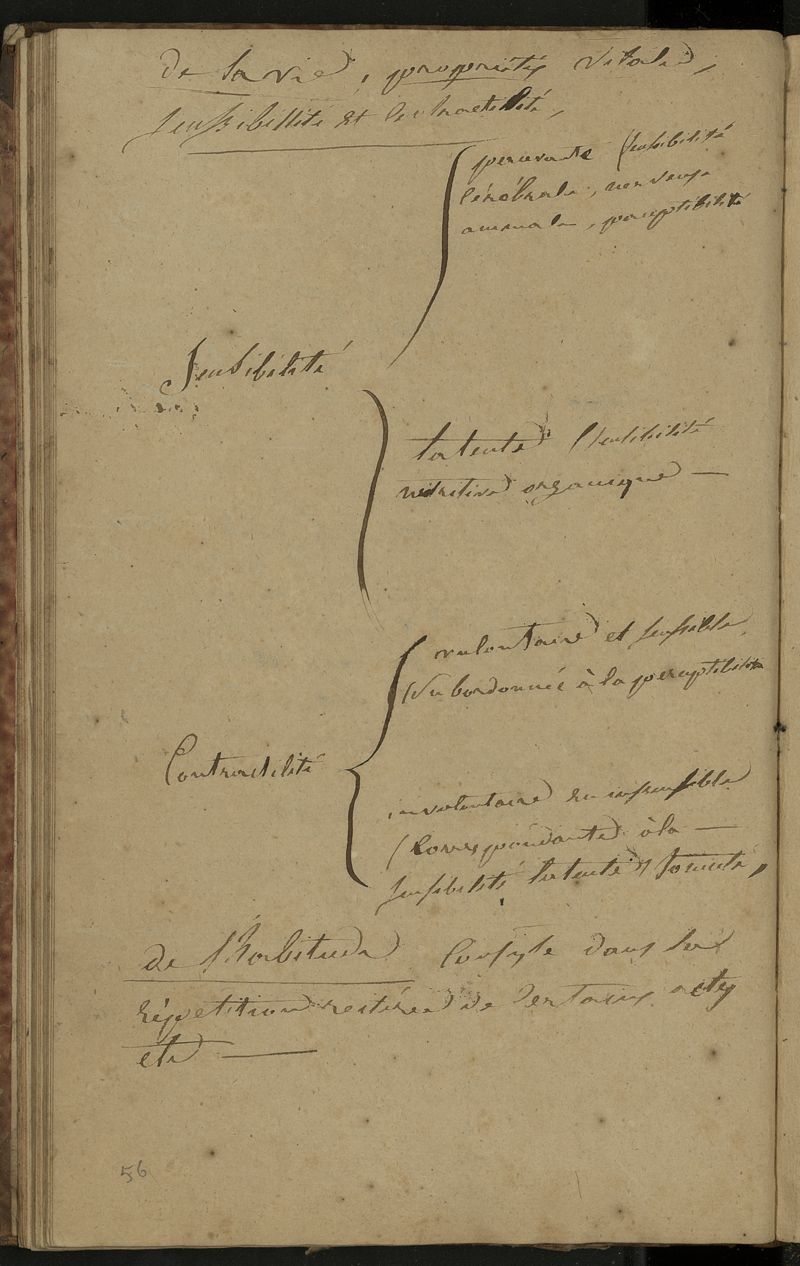 de la vie, propriétés vitales,
sensibillité et contractilité,
percevante sensibilité
Cérébrale, nerveuse
animale, perceptibilité
Sensibilité
latente (sensibilité
nutritive organique —
volontaire et sensible
(subordonnée à la perceptibilité
Contractilité
involontaire et insensible
(Correspondante à la —
sensibilité latente)
de l'habitude Consiste dans la
répétition reitérée de certains actes
etc —
56